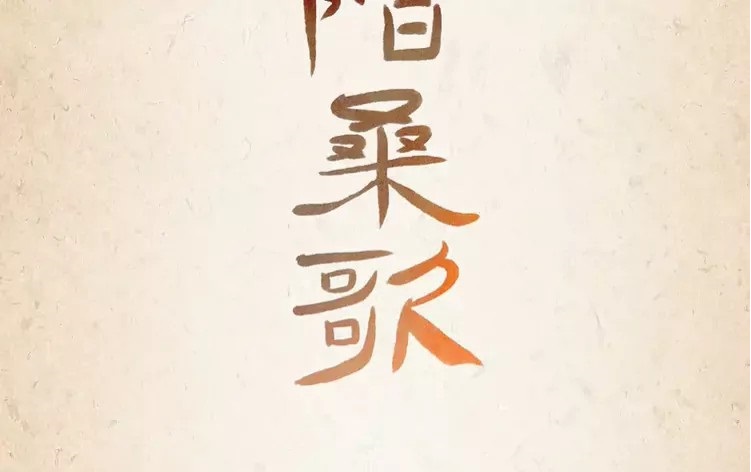 陌桑歌